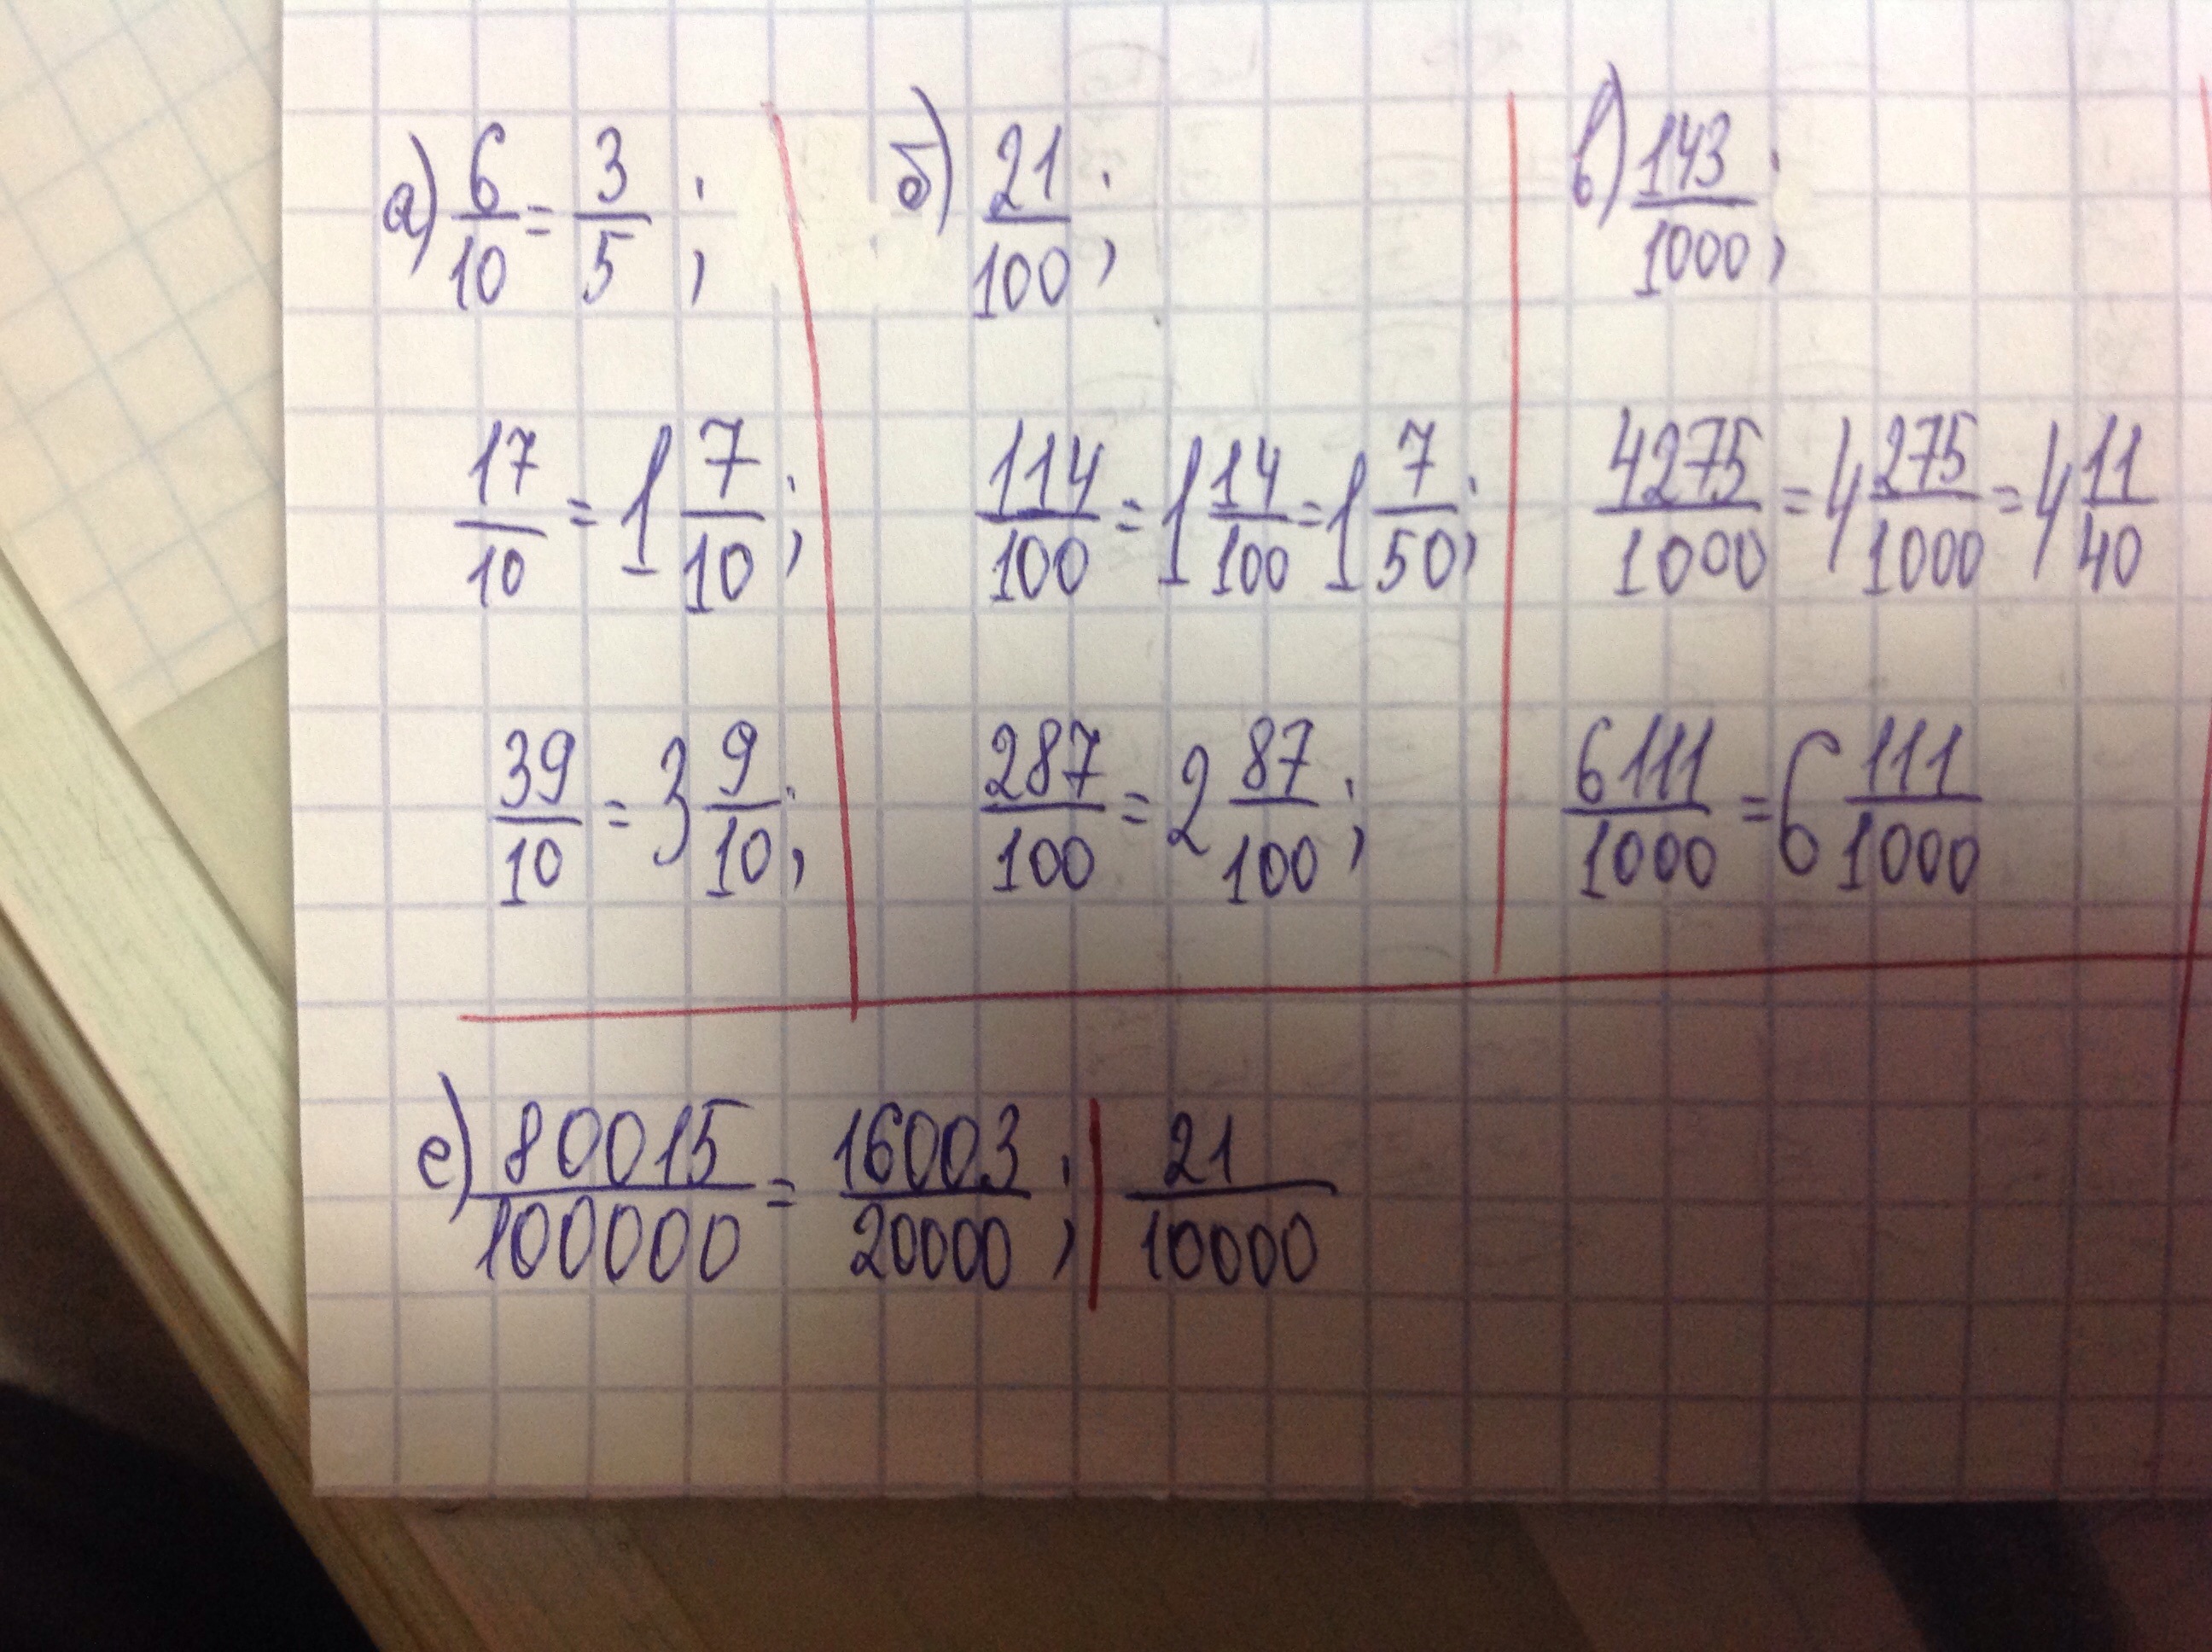 а) 6/10 = 3/5 ;
17/10 = 1 7/10 ;
39/10 = 3 9/10 ;
б) 21/100 ;
114/100 = 1 14/100 = 1 7/50 ;
287/100 = 2 87/100 ;
в) 143/1000 ;
4275/1000 = 4 275/1000 = 4 11/40
6111/1000 = 6 111/1000
е) 80015/100000 = 16003/20000 ; | 21/10000